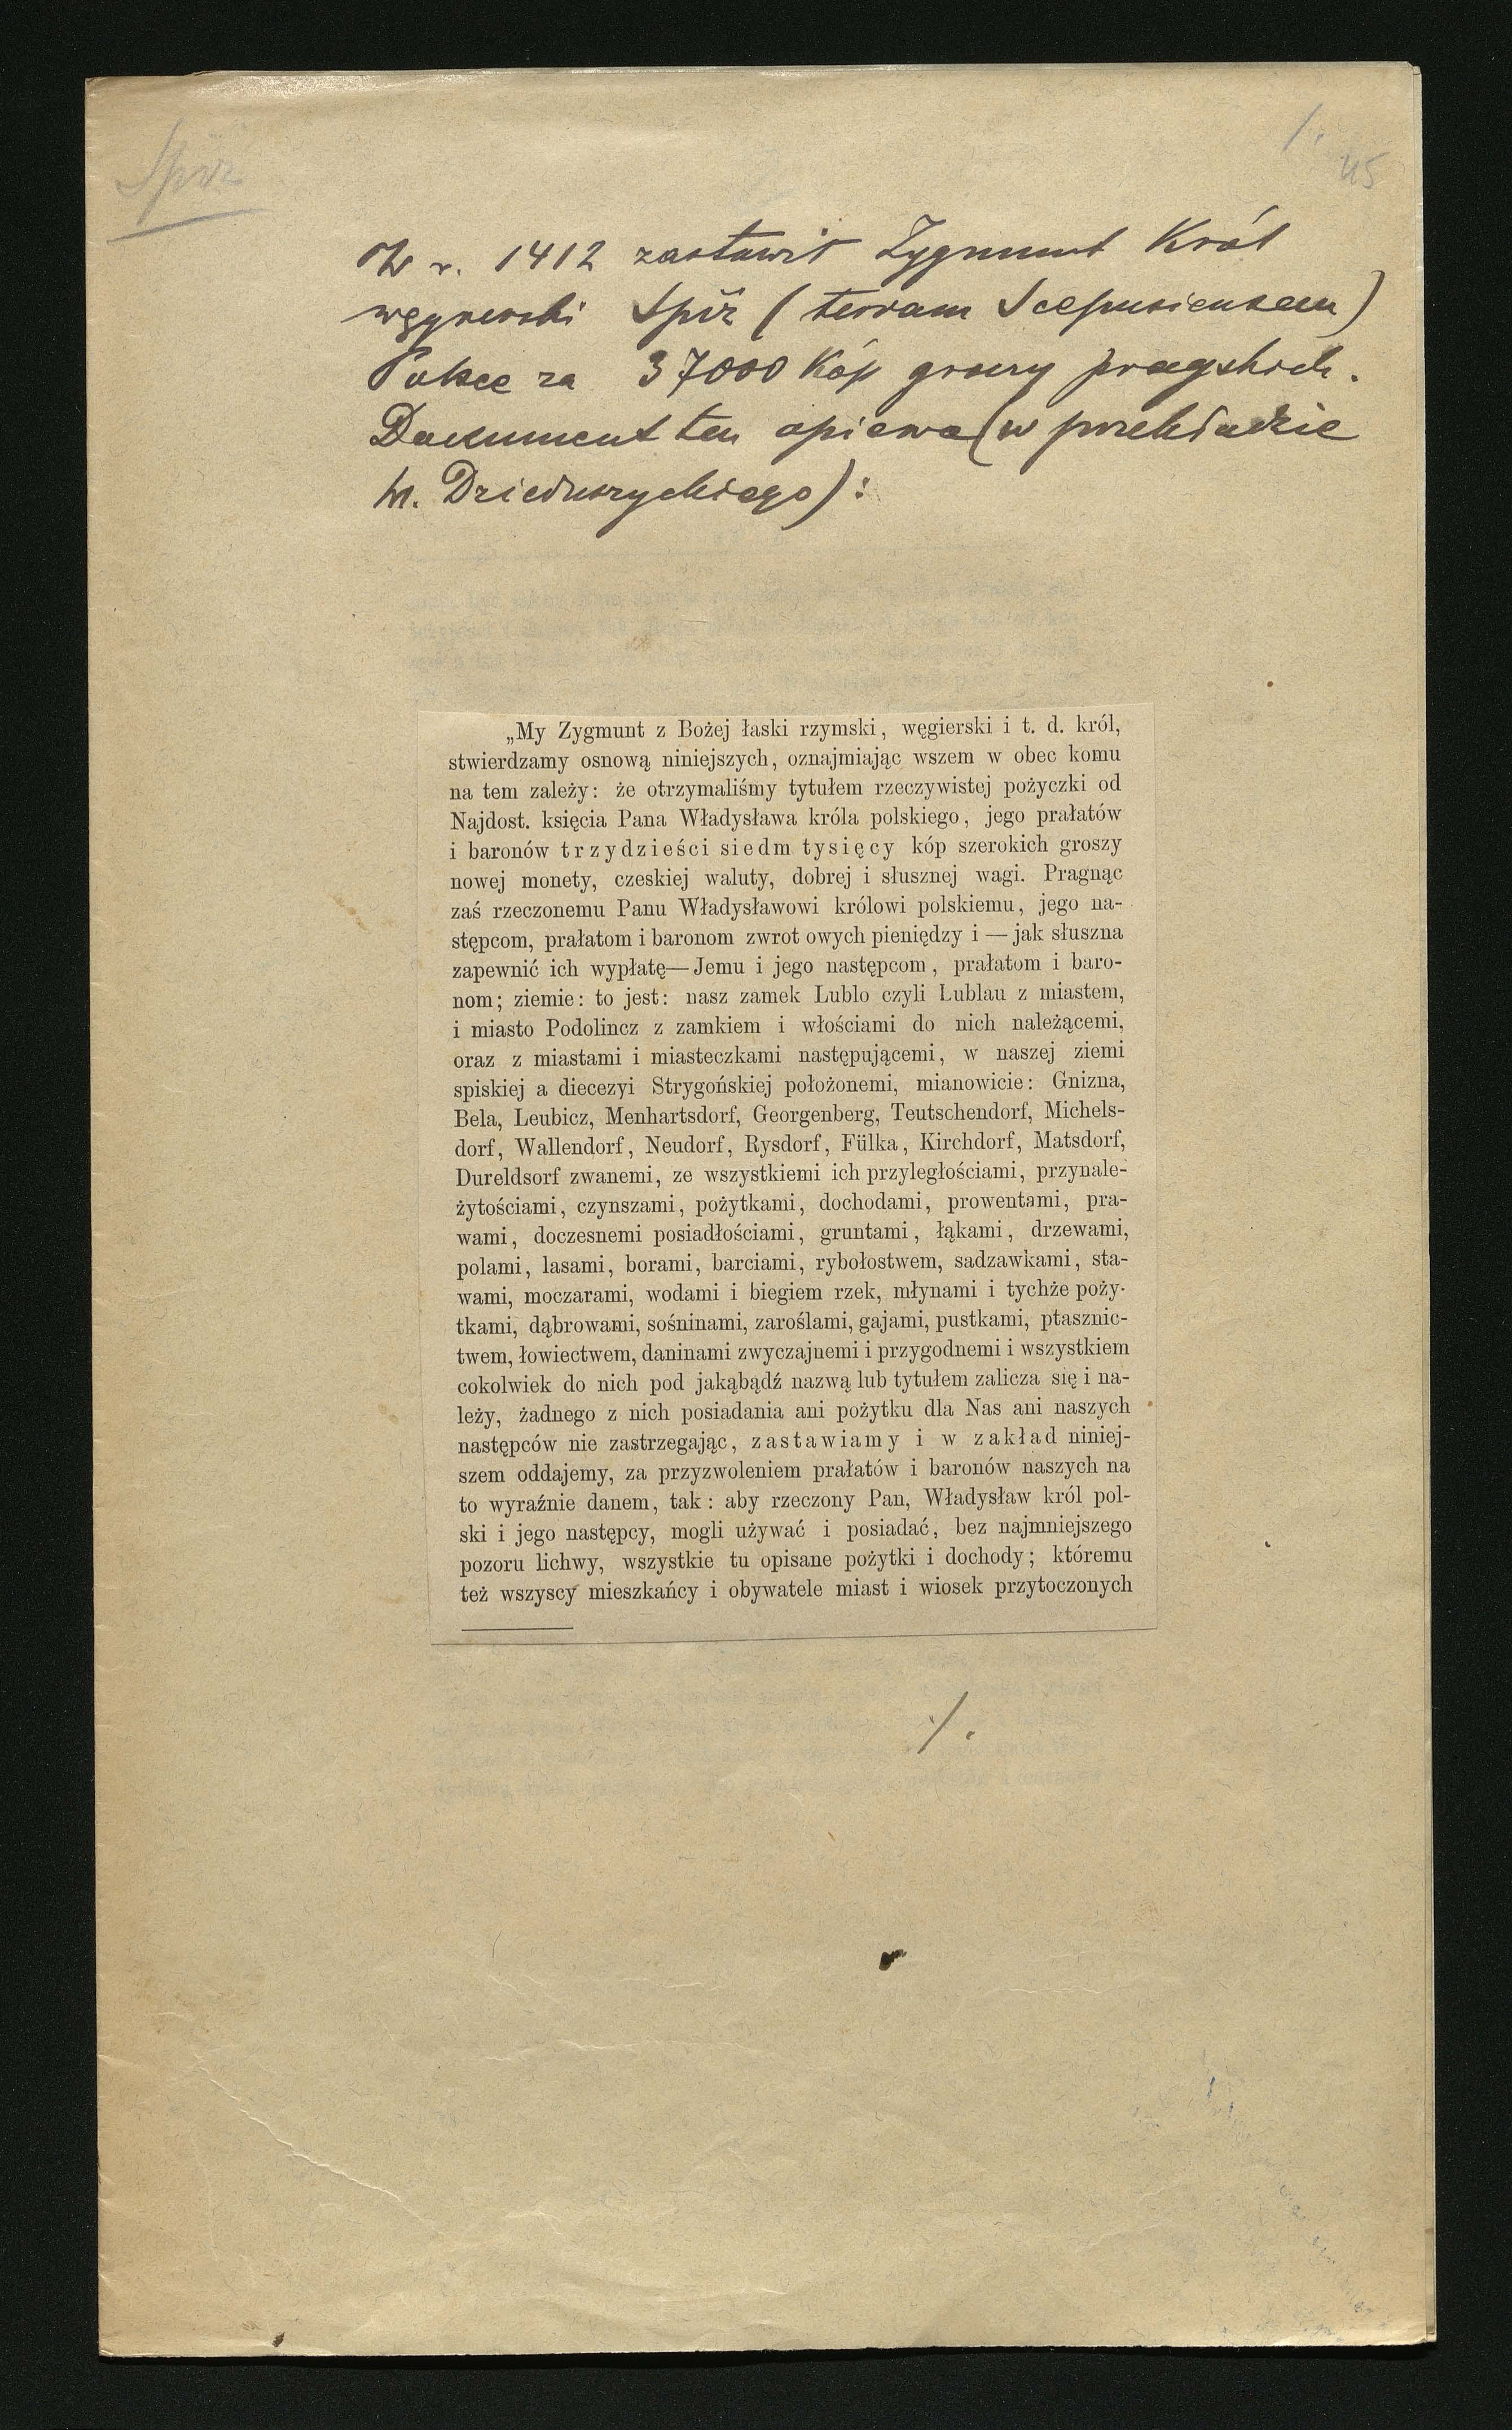 Spiż
1.
45
W r. 1412 zastawił Zygmunt Król
węgierski Spiż (terram Scepusiensem)
Polsce za 37000 Kóp groszy pragskich.
Dokument ten opiewa (w przekładzie
M. Dzieduszyckiego):
„My Zygmunt z Bożej łaski rzymski, węgierski i t. d. król,
stwierdzamy osnową niniejszych, oznajmiając wszem w obec komu
na tem zależy: że otrzymaliśmy tytułem rzeczywistej pożyczki od
Najdost. księcia Pana Władysława króla polskiego, jego prałatów
i baronów trzydzieści siedm tysięcy kóp szerokich groszy
nowej monety, czeskiej waluty, dobrej i słusznej wagi. Pragnąc
zaś rzeczonemu Panu Władysławowi królowi polskiemu, jego na-
stępcom, prałatom i baronom zwrot owych pieniędzy i — jak słuszna
zapewnić ich wypłatę— Jemu i jego następcom, prałatom i baro-
nom; ziemie: to jest: nasz zamek Lublo czyli Lublau z miastem,
i miasto Podolincz z zamkiem i włościami do nich należącemi,
oraz z miastami i miasteczkami następującemi, w naszej ziemi
spiskiej a diecezyi Strygońskiej położonemi, mianowicie: Gnizna,
Bela, Leubicz, Menhartsdorf, Georgenberg, Teutschendorf, Michels-
dorf, Wallendorf, Neudorf, Rysdorf, Fülka, Kirchdorf, Matsdorf,
Dureldsorf zwanemi, ze wszystkiemi ich przyległościami, przynale-
żytościami, czynszami, pożytkami, dochodami, prowentami, pra-
wami, doczesnemi posiadłościami, gruntami, łąkami, drzewami,
polami, lasami, borami, barciami, rybołostwem, sadzawkami, sta-
wami, moczarami, wodami i biegiem rzek, młynami i tychże poży-
tkami, dąbrowami, sośninami, zaroślami, gajami, pustkami, ptasznic-
twem, łowiectwem, daninami zwyczajnemi i przygodnemi i wszystkiem
cokolwiek do nich pod jakąbądź nazwą lub tytułem zalicza się i na-
leży, żadnego z nich posiadania ani pożytku dla Nas ani naszych
następców nie zastrzegając, zastawiamy i w zakład niniej-
szem oddajemy, za przyzwoleniem prałatów i baronów naszych na
to wyraźnie danem, tak: aby rzeczony Pan, Władysław król pol-
ski i jego następcy, mogli używać i posiadać, bez najmniejszego
pozoru lichwy, wszystkie tu opisane pożytki i dochody; któremu
też wszyscy mieszkańcy i obywatele miast i wiosek przytoczonych
./.